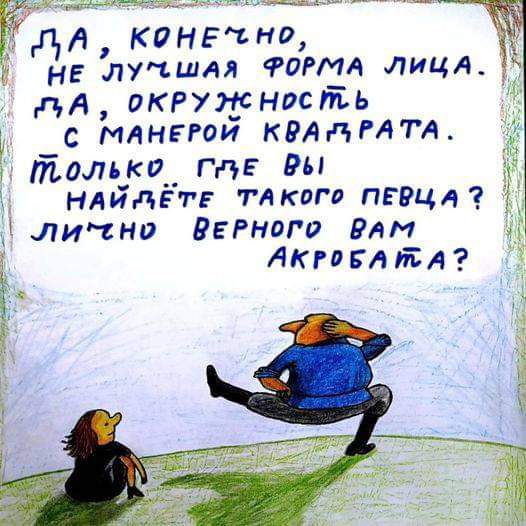 ДА, КОНЕЧНО,
НЕ ЛУЧШАЯ ФОРМА ЛИЦА.
ДА, ОКРУЖНОСТЬ
С МАНЕРОЙ КВАДРАТА.
ТОЛЬКО ГДЕ ВЫ
НАЙДЁТЕ ТАКОГО ПЕВЦА?
ЛИЧНО ВЕРНОГО ВАМ
АКРОБАТА?